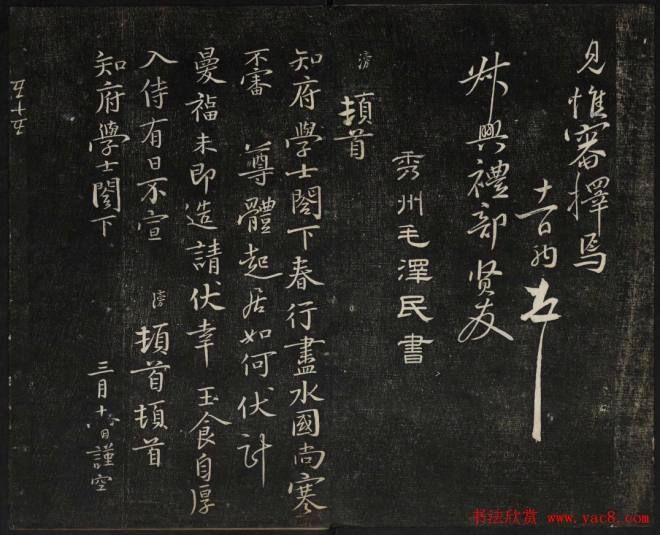 见惟審擇焉
十一日
叔興禮部贤友
秀州毛澤民書
滂 頓首
知府學士閤下春行盡水國尚寒
不審 尊體起居如何伏計
曼福未即造請伏幸 玉食自厚
入侍有日不宣 滂 頓首頓首
知府學士閤下
三月十八日謹空
五十五
书法欣赏 www.yac8.com